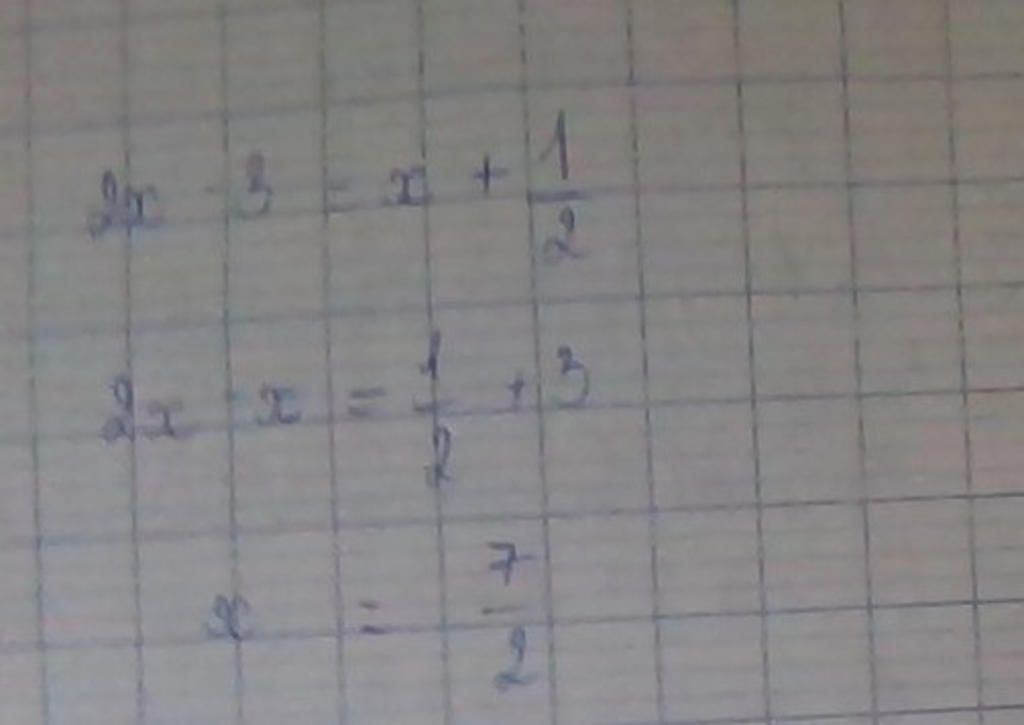 2x - 3 = x + 1/2
2x - x = 1/2 + 3
x = 7/2